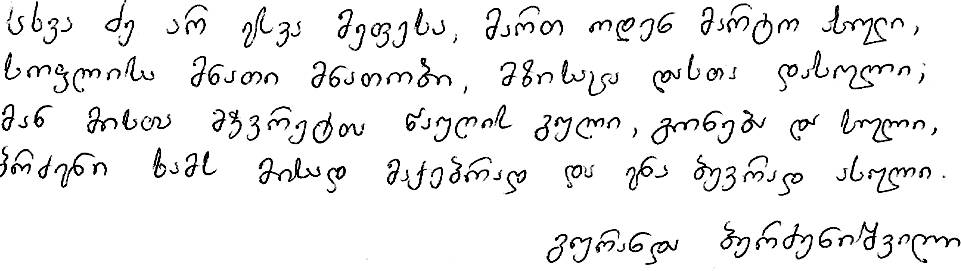 სხვა ძე არ ესვა მეფესა, მართ ოდენ მარტო ასული,
სოფლისა მნათი მნათობი, მზისაცა დასთა დასული;
მან მისთა მჭვრეტთა წაუღის გული, გონება და სული,
ბრძენი ხამს მისად მაქებრად და ენა ბევრად ასული.
გურანდა ბერძენიშვილი